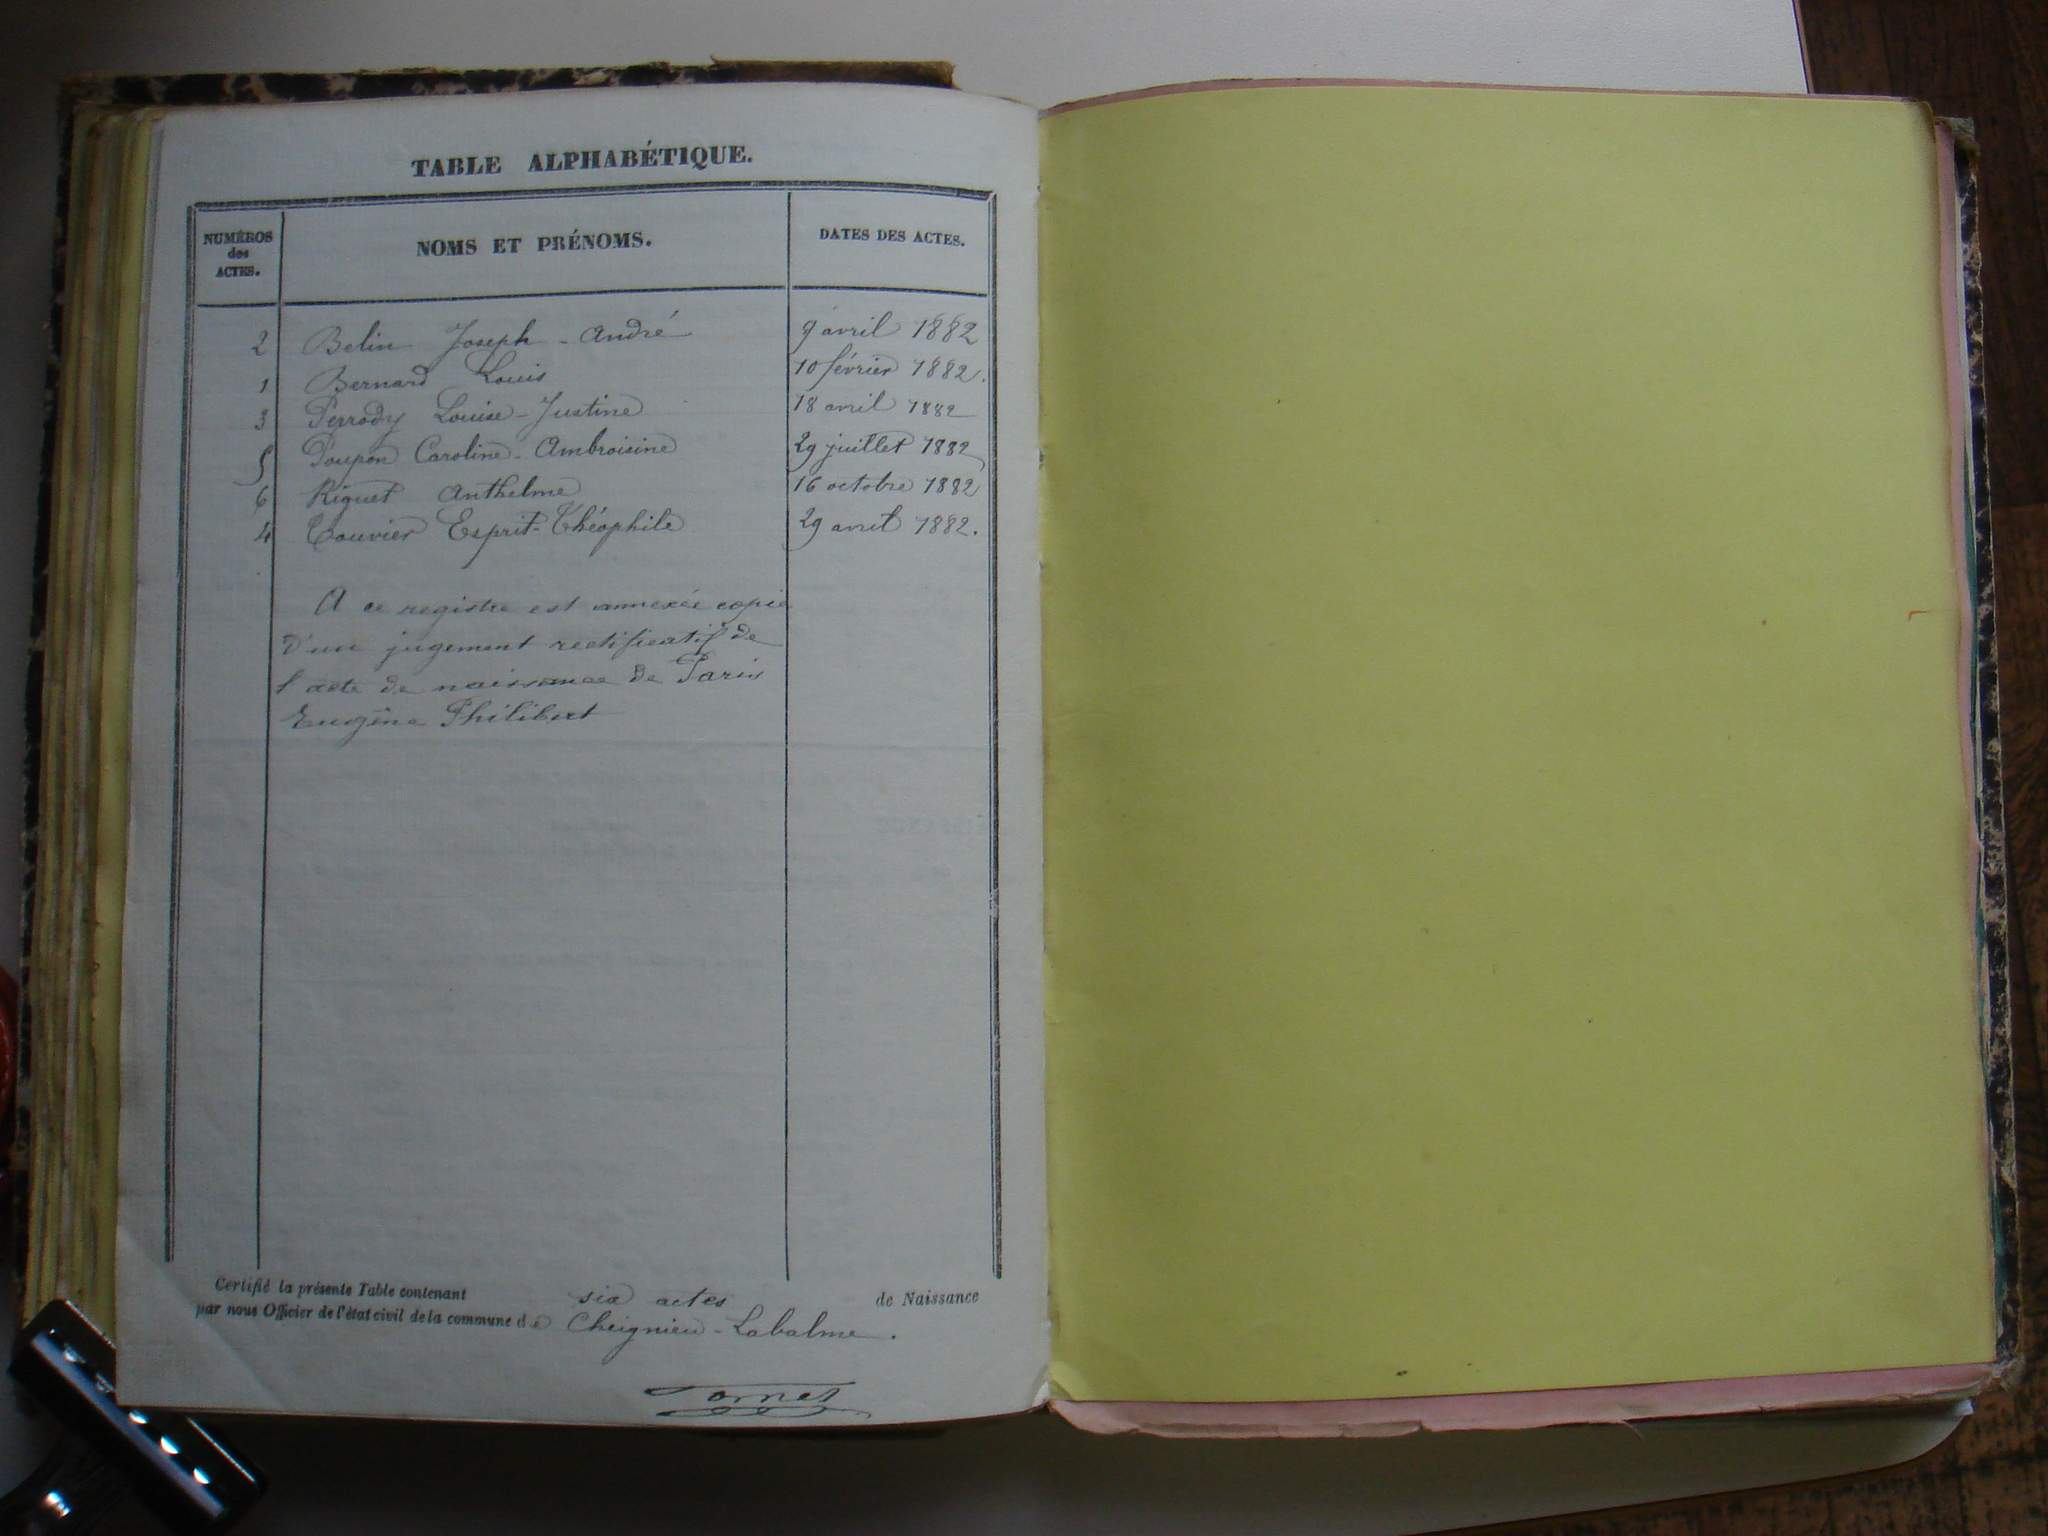 TABLE ALPHABÉTIQUE.
NUMÉROS des ACTES. NOMS ET PRÉNOMS. DATES DES ACTES.
2 Belin Joseph-André 9 avril 1882
1 Bernard Louis 10 février 1882.
3 Perrody Louise-Justine 18 avril 1882
5 Poupon Caroline-Ambroisine 29 juillet 1882
6 Riguet Anthelme 16 octobre 1882
4 Touvier Esprit-Théophile 29 avril 1882.
A ce registre est annexée copie
d'un jugement rectificatif de
l'acte de naissance de Paris
Eugène Philibert
Certifié la présente Table contenant six actes de Naissance
par nous Officier de l'état civil de la commune de Cheignieu-Labalme.